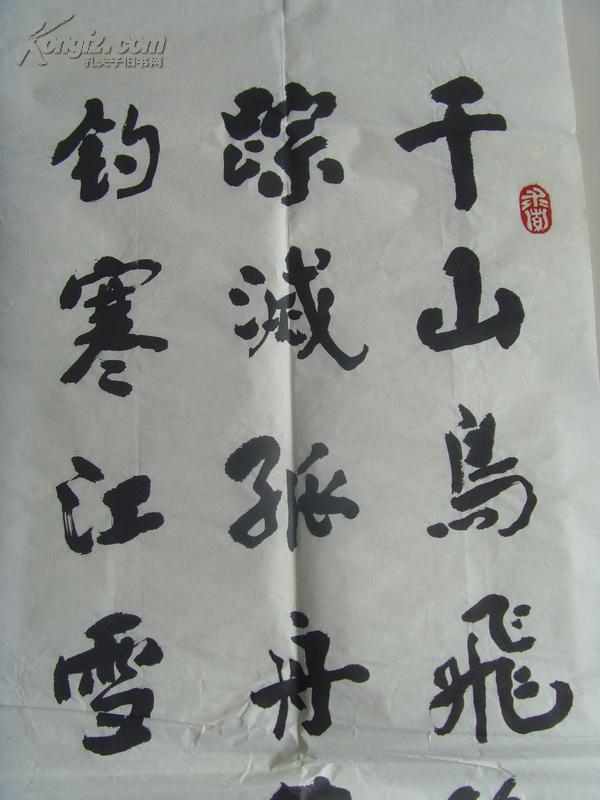 千山鸟飞
踪灭孤舟
钓寒江雪
Kongfz.com
孔夫子旧书网